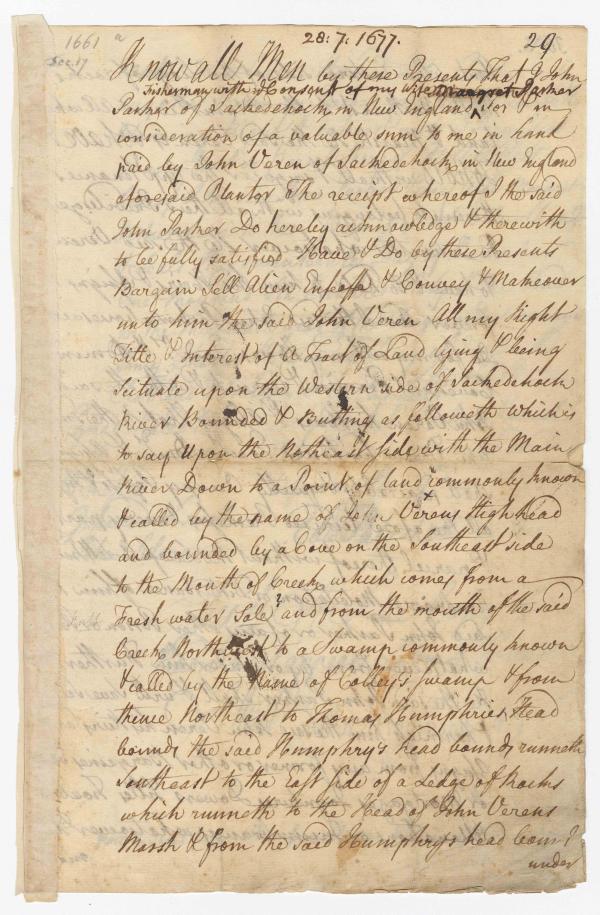 1661 a
28: 7: 1677.
29
Dec. 17
Know all Men by these Presents That I John
Fisherman with ye Consent of my wife Margret Parker
Parker of Sackedehock in New England for & in
consideration of a valuable sum to me in hand
paid by John Veren of Sackedehock in New England
aforesaid Plantor The receipt whereof I the said
John Parker Do hereby acknowledge & therewith
to be fully satisfied Have & Do by these Presents
Bargain Sell Alien Enfeoffe & Convey & Makeover
unto him the said John Veren All my Right
Title & Interest of A Tract of Land lying & being
Scituate upon the Western side of Sackedehock
River Bounded & Butting as followeth which is
to say Upon the Notheast Side with the Main
River Down to a Point of land commonly known
& called by the name of John Verens High head
and bounded by a Cove on the Southeast side
to the Mouth of Creek which comes from a
Fresh water Sale? and from the mouth of the said
Creek to a Swamp commonly known
& called by the Name of Colley's Swamp & from
thence Northeast to Thomas Humphries Head
bounds the said Humphry's head bounds runneth
Southeast to the East side of a Ledge of Rocks
which runneth to the Head of John Verens
Marsh & from the said Humphrys head bounds
under